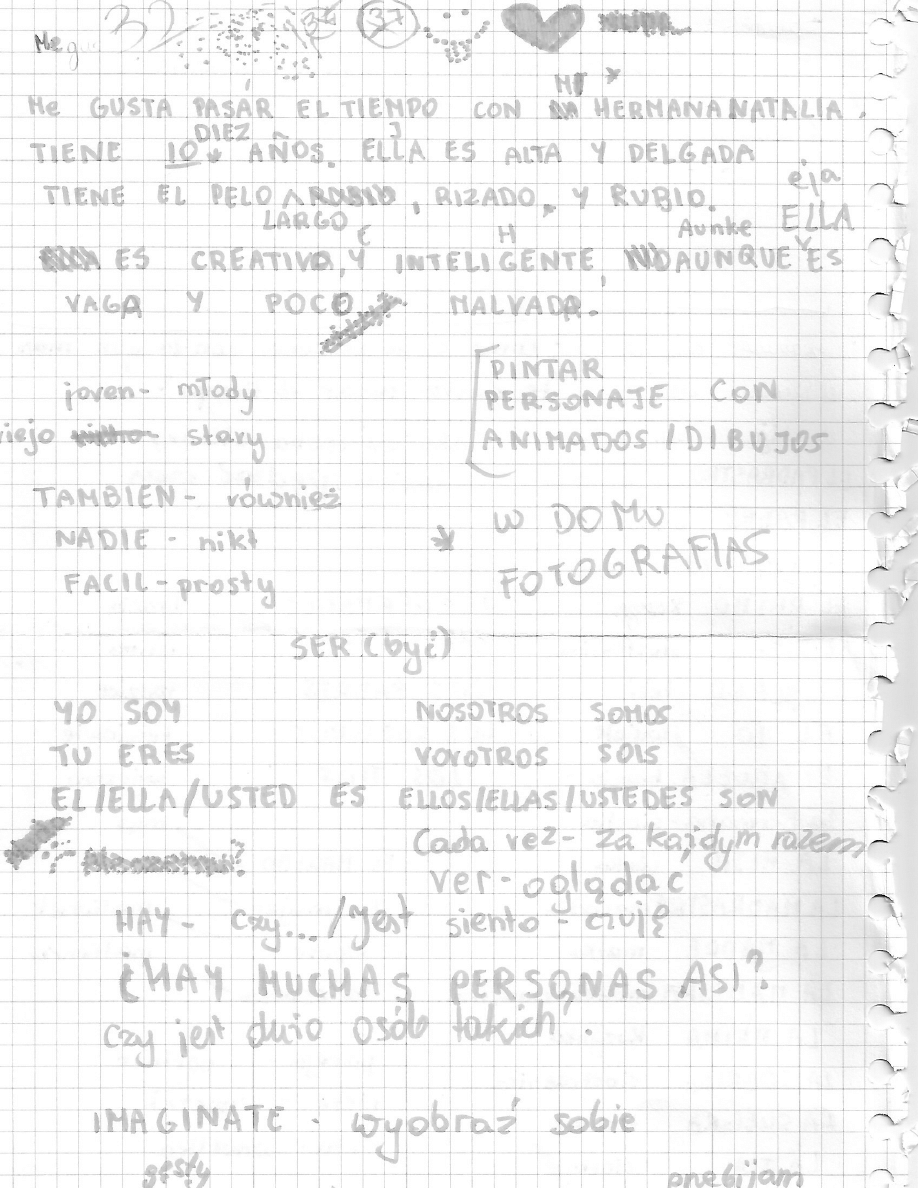 Me 32 32 37
MI
Me GUSTA PASÁR EL TIEMPO CON HERMANA NATALIA.
DIEZ J
TIENE 10 AÑOS. ELLA ES ALTA Y DELGADA
TIENE EL PELO, RIZADO, Y RUBIO. eja
LARGO E H Aunke ELLA
ES CREATIVA, Y INTELIGENTE, AUNQUE Y ES
VAGA Y POCO MALVADA.
joven - młody
viejo stary
PINTAR
PERSONAJE CON
ANIMADOS / DIBUJOS
TAMBIEN - również
NADIE - nikt
FACIL - prosty
* W DOMU
FOTOGRAFIAS
SER (być)
YO SOY NOSOTROS SOMOS
TU ERES VOVOTROS SOIS
EL/ELLA/USTED ES ELLOS/ELLAS/USTEDES SON
Cada vez - za kajdym razem
ver - oglądac
HAY - Czy.../Jest siento - czuję
¿HAY MUCHAS PERSONAS ASI?
Czy jest dużo osób takich?.
IMAGINATE - wyobraź sobie
gęsty przebijam